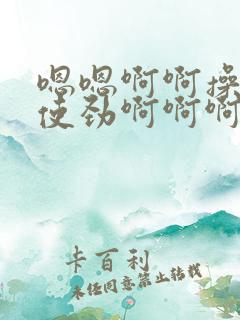 嗯嗯啊啊操
使劲啊啊啊
卡百利
未经同意禁止转载